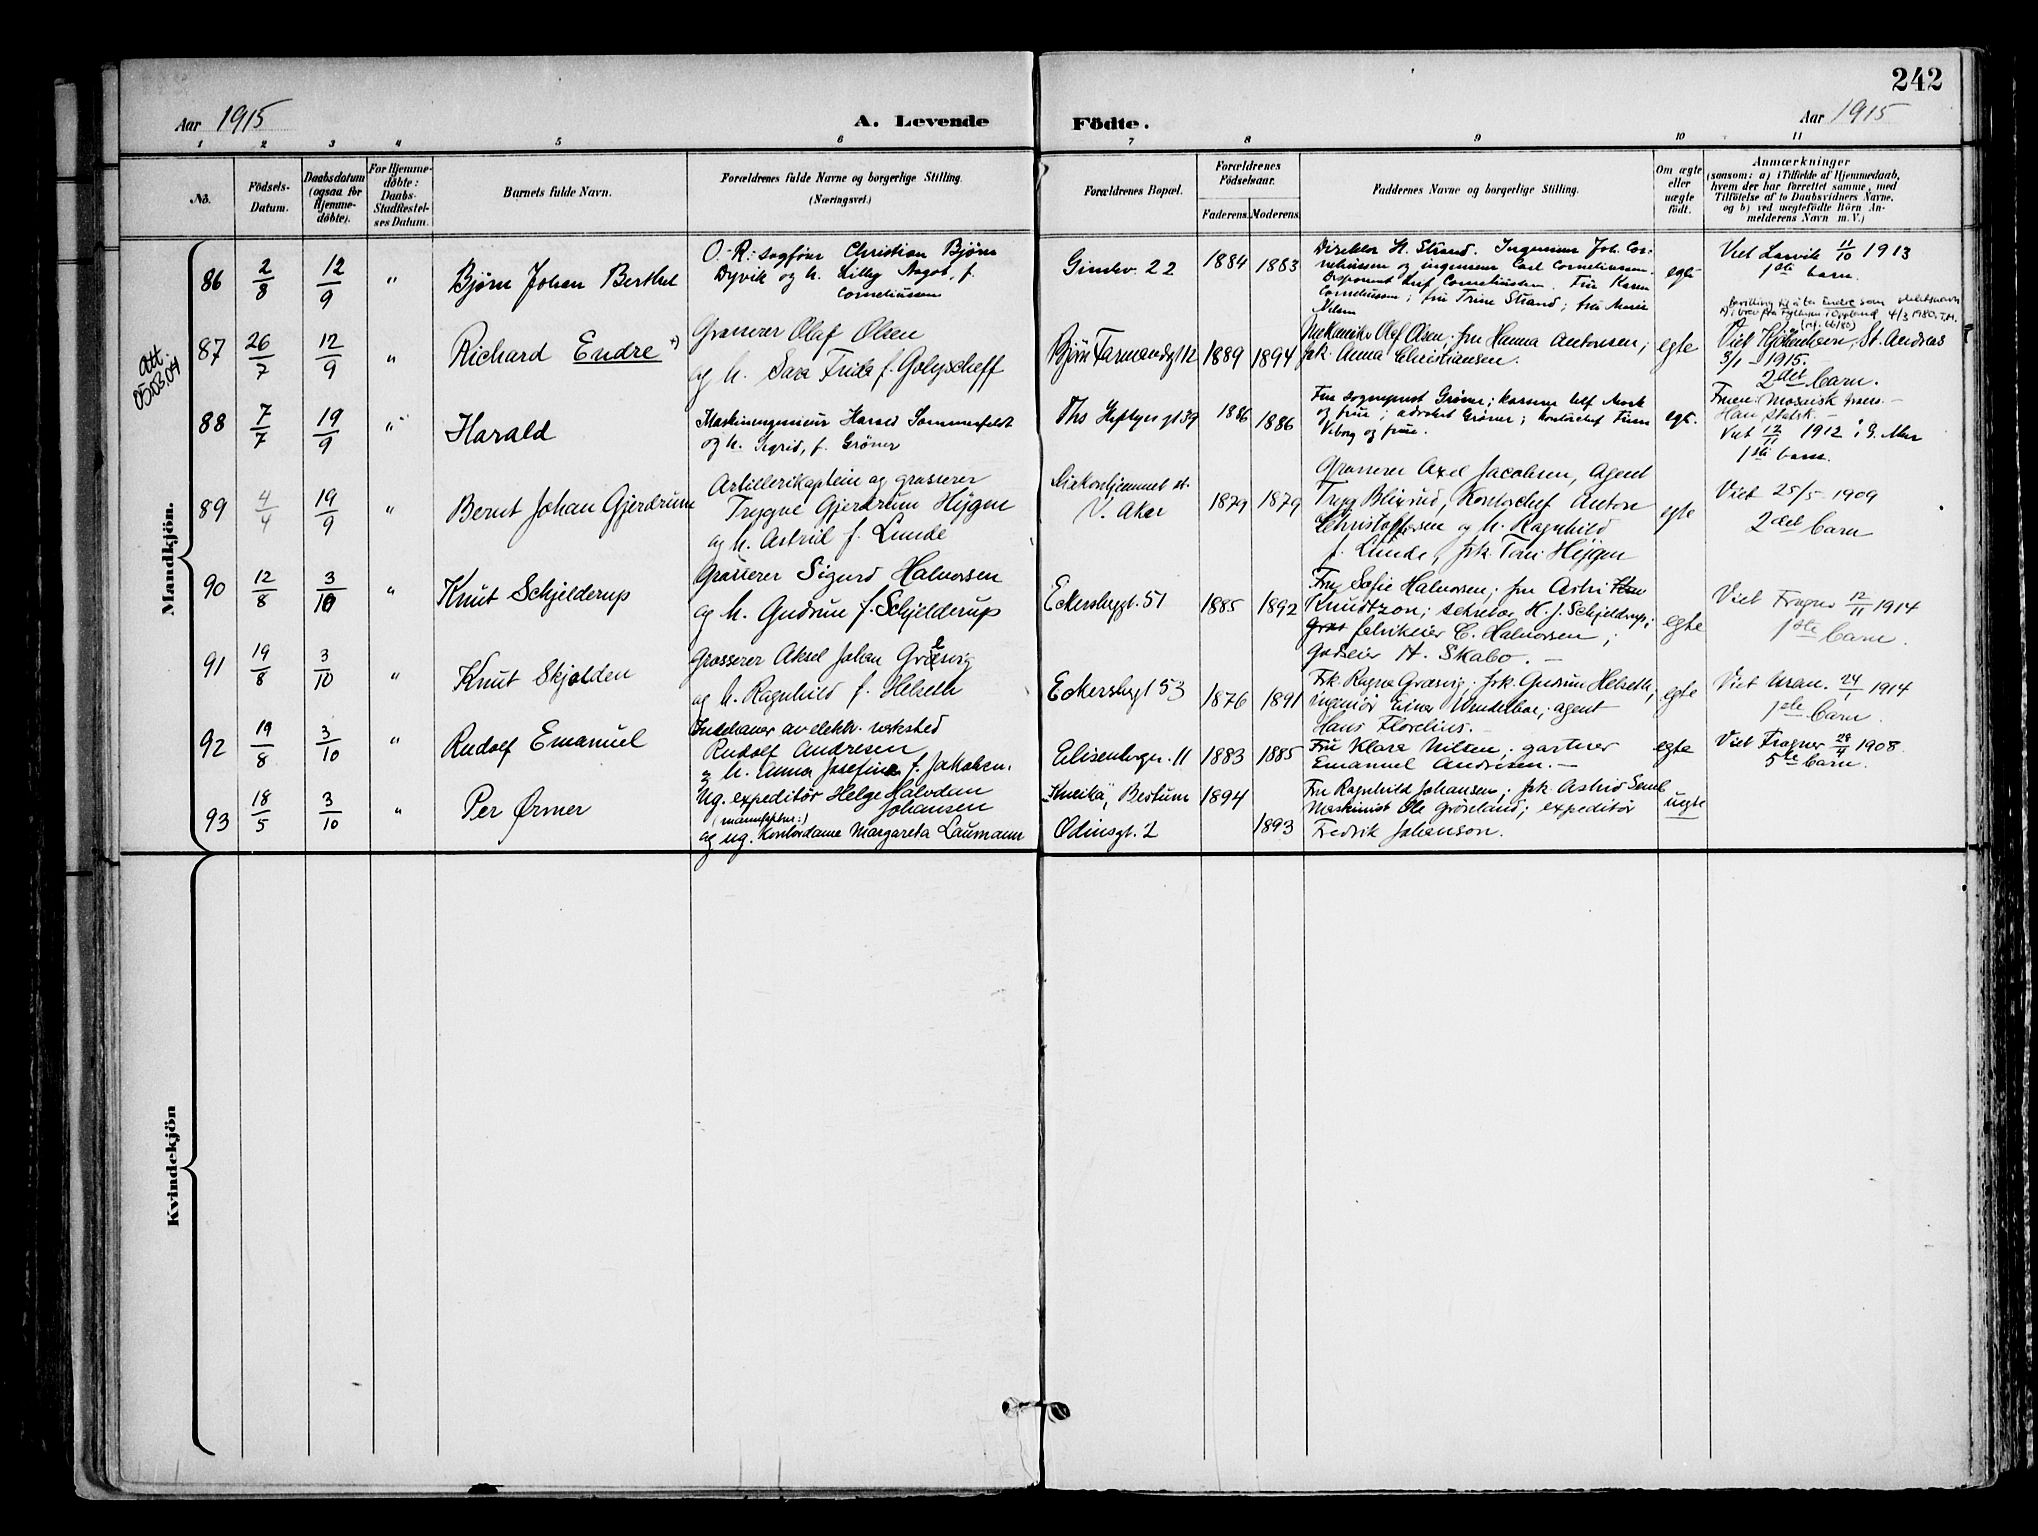 242
Aar 1915
A. Levende
Födte.
Aar 1915
1 2 3 4 5 6 7 8 9 10 11
No.
Födsels-
Datum.
Daabsdatum
(ogsaa for
Hjemme-
døbte).
For Hjemme-
døbte:
Daabs-
Stadfæstel-
ses Datum.
Barnets fulde Navn.
Forældrenes fulde Navne og borgerlige Stilling.
(Næringsvei.)
Forældrenes Bopæl.
Forældrenes
Födselsaar.
Faderens. Moderens.
Faddernes Navne og borgerlige Stilling.
Om ægte
eller
uægte
født.
Anmærkninger
(saasom: a) i Tilfælde af Hjemmedaab,
hvem der har forrettet samme, med
Tilføielse af to Daabsvidners Navne,
og b) ved uægtefødte Börn An-
melderens Navn m. V.)
Mandkjön.
86 2/8 12/9 "
Bjørn Johan Berthel
O-R: sagfører Christian Bjørn
Dyvik og h. Lilly Aagot, f.
Corneliussen
Gimlev. 22
1884 1883
Direktør H. Strand. Ingeniør Joh. Cor-
neliussen og ingeniør Carl Corneliussen.
Disponent Leif Corneliussen. Fru Karen
Corneliussen; fru Trine Strand; fru
egte
Viet Larvik 11/10 1913
1ste barn.
Att.
050304
87 26/7 12/9 "
Richard Endre +)
Grosserer Olaf Olsen
og h. Sara Frida f. Golyscheff
Bjørn Farmandsgt 12
1889 1894
Mekaniker Olaf Olsen; fru Hanna Antonsen;
frk. Anna Christiansen.
egte
4/3 1980. T.M.
Viet Kjøbenhavn, St. Andreas
3/1 1915.
2det barn.
Fruen: Mosaisk troes.
Han statsk. -
88 7/7 19/9 "
Harald
Maskiningeniør Harald Sommerfeldt
og h. Sigrid, f. Grøner
Ths Heftyes gt 39
1886 1886
Fru sogneprest Grøner; kaserer Ulf Mork
og frue; advokat Grøner; kontorchef Finn
Viborg og frue.
egt.
Viet 12/11 1912 i G. Aker
1ste barn.
89 4/4 19/9 "
Bernt Johan Gjerdrum
Artillerikaptein og grosserer
Trygve Gjerdrum Höygen
og h. Astrid f. Lunde
V. Aker
1879 1879
Grosserer Axel Jacobsen, Agent
Tryg Blixrud, Kontorchef Anton
Christoffersen og h. Ragnhild
f. Lunde, frk. Toni Höygen
egte
Viet 25/5 1909
2det barn
90 12/8 3/10 "
Knut Schjelderup
Grosserer Sigurd Halvorsen
og h. Gudrun f. Schjelderup
Eckersbygt. 51
1885 1892
Fru Sofie Halvorsen; fru Astri
Knudtzon; sekretær H. J. Schjelderup;
fabrikeier C. Halvorsen;
godseier H. Skabo. -
egte
Viet Frogner 12/11 1914
1ste barn.
91 19/8 3/10 "
Knut Skjolden
Grosserer Aksel Johan Græsvig
og h. Ragnhild f. Helseth
Eckersbygt 53
1876 1891
Frk. Ragna Græsvig; frk. Gudrun Helseth;
ingeniør Einar Wenderboe; agent
Hans Florelius.
egte
Viet Uran. 24/1 1914
1ste barn.
92 19/8 3/10 "
Rudolf Emanuel
Indehaver av elektr. verksted
Rudolf Andresen
og h. Anna Josefine f. Jakobsen.
Elisenbergv. 11
1883 1885
Fru Klara Nilsen; gartner
Emanuel Andresen. -
egte
Viet Frogner 29/4 1908.
5te barn.
93 18/5 3/10 "
Per Ørmer
Ug. expeditør Helge Halvdan
Johansen
og ug. Kontordame Margareta Laumann
"Kneika", Bestum
Odinsgt. 2
1894
1893
Fru Ragnhild Johansen; frk. Astrid
Maskinist Ole Gröseland; expeditør
Fredrik Johanson.
uegte
Kvindekjön